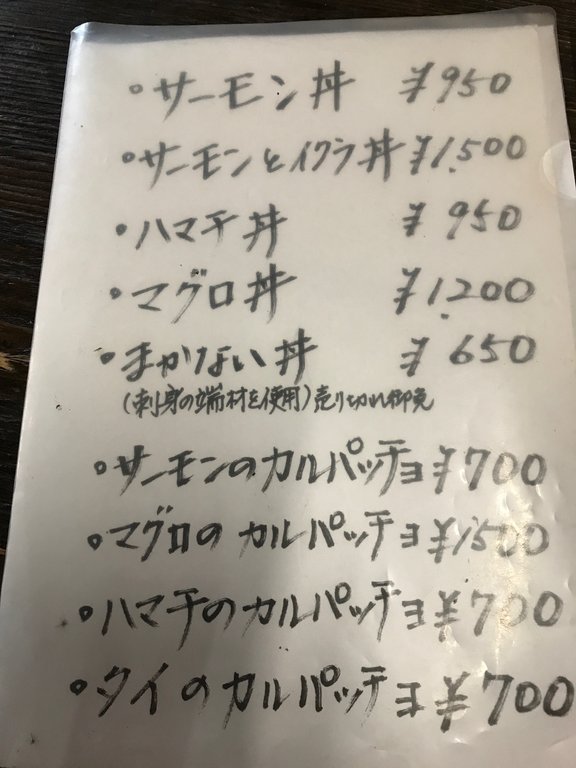 ・サーモン丼 ¥950
・サーモンとイクラ丼 ¥1,500
・ハマチ丼 ¥950
・マグロ丼 ¥1,200
・まかない丼 ¥650
(刺身の端材を使用)売り切れ御免
・サーモンのカルパッチョ ¥700
・マグロのカルパッチョ ¥1,500
・ハマチのカルパッチョ ¥700
・タイのカルパッチョ ¥700